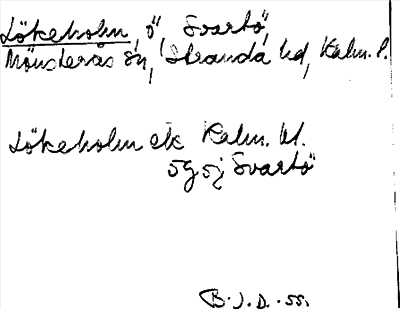 Lökeholm, ö, Svartö,
Mönsterås sn, Stranda hd, Kalm. l.
Lökeholm ek Kalm. bl.
59 5j Svartö
B. J. D. 55.